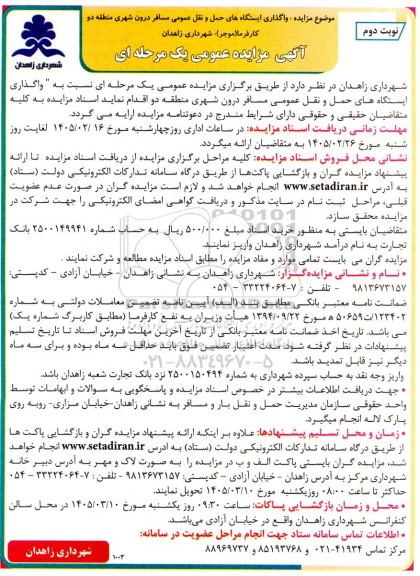 موضوع مزایده : واگذاری ایستگاه های حمل و نقل عمومی مسافر درون شهری منطقه دو
کارفرما(موجر):- شهرداری زاهدان
نوبت دوم
آگهی مزایده عمومی یک مرحله ای
شهرداری زاهدان
شهرداری زاهدان در نظر دارد از طریق برگزاری مزایده عمومی یک مرحله ای نسبت به " واگذاری
ایستگاه های حمل و نقل عمومی مسافر درون شهری منطقه دو اقدام نماید اسناد مزایده به کلیه
متقاضیان حقیقی و حقوقی دارای شرایط مندرج در دعوتنامه مزایده ارایه می گردد.
مهلت زمانی دریافت اسناد مزایده: در ساعات اداری روز چهارشنبه مورخ ۱۴۰۵/۰۲/۱۶ لغایت روز
شنبه مورخ ۱۴۰۵/۰۲/۲۶ به متقاضیان ارائه میگردد.
نشانی محل فروش اسناد مزایده: کلیه مراحل برگزاری مزایده از دریافت اسناد مزایده تا ارائه
پیشنهاد مزایده گران و بازگشایی پاکت‌ها از طریق درگاه سامانه تدارکات الکترونیکی دولت (ستاد)
به آدرس www.setadiran.ir انجام خواهد شد و لازم است مزایده گران در صورت عدم عضویت
قبلی، مراحل ثبت نام در سایت مذکور و دریافت گواهی امضای الکترونیکی را جهت شرکت در
مزایده محقق سازد.
متقاضیان بایستی به منظور خرید اسناد مبلغ ۵۰۰/۰۰۰ ریال به حساب شماره ۲۵۰۰۱۴۹۹۴۱ بانک
تجارت به نام درآمد شهرداری زاهدان واریز نمایند.
مزایده گران می بایست تمامی موارد و مفاد مزایده را مطابق اسناد مزایده مطالعه و شرکت نمایند .
• نام و نشانی مزایده‌گزار: شهرداری زاهدان به نشانی زاهدان - خیابان آزادی - کدپستی:
۹۸۱۳۶۷۳۱۵۷ - تلفن : ۷-۳۳۲۲۴۰۶۴ - ۰۵۴
ضمانت نامه معتبر بانکی مطابق بند (الف) آیین نامه تضمین معاملات دولتی به شماره
۱۲۳۴۰۲/ت۵۰۶۵۹ه مورخ ۱۳۹۴/۰۹/۲۲ هیأت وزیران به نفع کارفرما (مطابق کاربرگ شماره یک)
می باشد. تاریخ اخذ ضمانت نامه معتبر بانکی از تاریخ آخرین مهلت فروش اسناد تا تاریخ تسلیم
پیشنهادات در نظر گرفته شود. مدت اعتبار تضمین فوق باید حداقل سه ماه بوده و برای سه ماه
دیگر نیز قابل تمدید باشد.
واریز وجه نقد به حساب سپرده شهرداری به شماره ۲۵۰۰۱۵۰۴۹۴ نزد بانک تجارت شعبه زاهدان باشد.
• جهت دریافت اطلاعات بیشتر در خصوص اسناد مزایده و پاسخگویی به سوالات و ابهامات توسط
واحد حقوقی سازمان مدیریت حمل و نقل بار و مسافر به نشانی زاهدان-خیابان مزاری- روبه روی
پارک لاله انجام میگیرد.
• زمان و محل تسلیم پیشنهادها: علاوه بر اینکه ارائه پیشنهاد مزایده گران و بازگشایی پاکت ها
از طریق درگاه سامانه تدارکات الکترونیکی دولت (ستاد) به آدرس www.setadiran.ir انجام خواهد
شد، مزایده گران بایستی پاکت الف و ب در مزایده را به صورت لاک و مهر به آدرس دبیر خانه
شهرداری مرکز به آدرس زاهدان - خیابان آزادی - کدپستی: ۹۸۱۳۶۷۳۱۵۷ تلفن: ۷-۳۳۲۲۴۰۶۴ - ۰۵۴
حداکثر تا ساعت ۰۸:۰۰ روز یکشنبه مورخ ۱۴۰۵/۰۳/۱۰ تحویل نمایند.
• محل و زمان بازگشایی پاکات: ساعت ۰۹:۳۰ روز یکشنبه مورخ ۱۴۰۵/۰۳/۱۰ در محل سالن
کنفرانس شهرداری زاهدان واقع در خیابان آزادی می‌باشد.
• اطلاعات تماس سامانه ستاد جهت انجام مراحل عضویت در سامانه:
مرکز تماس ۴۱۹۳۴-۰۲۱ و ۸۵۱۹۳۷۶۸ و ۸۸۹۶۹۷۳۷
شهرداری زاهدان
۱۰۰۳
۰۲۱-۸۸۳۴۹۶۷۰-۵